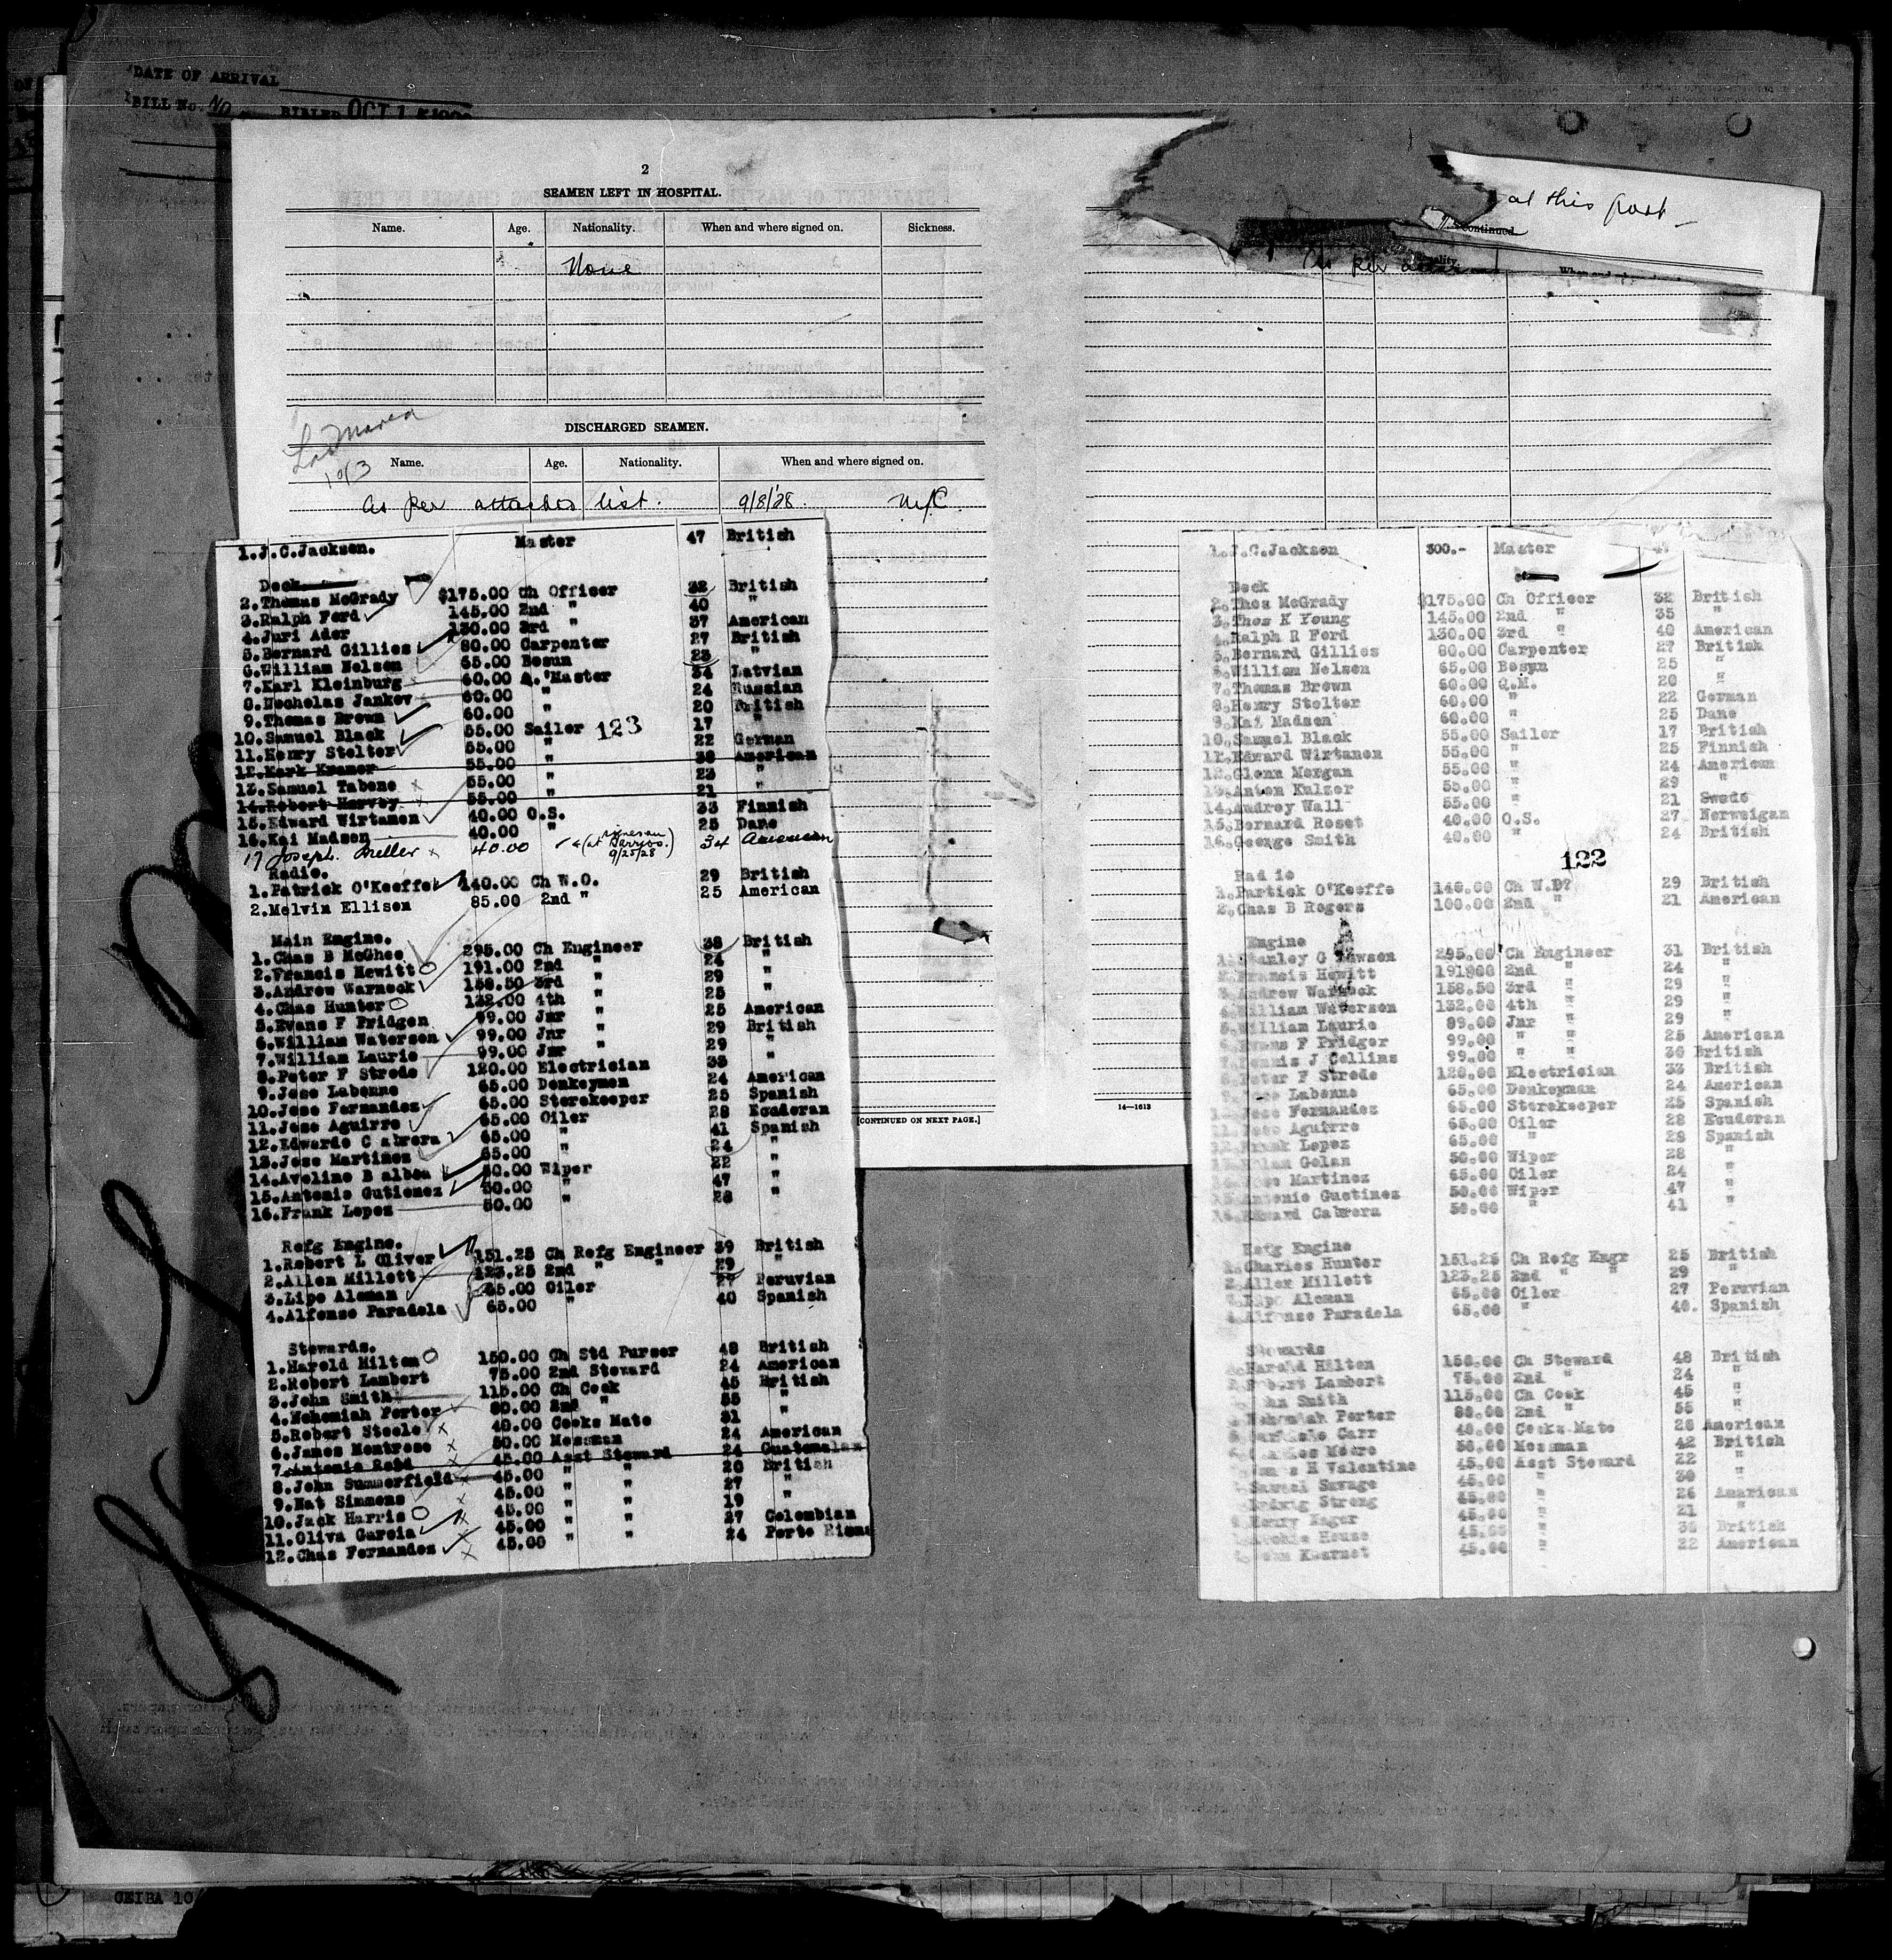 DATE OF ARRIVAL
BILL No. NO
OCT 1
2
SEAMEN LEFT IN HOSPITAL.
Name. Age. Nationality. When and where signed on. Sickness.
None
DISCHARGED SEAMEN.
Name. Age. Nationality. When and where signed on.
As per attached list. 9/8/28. N/C
1.J.C.Jackson. Master 47 British
Deck
2.Thomas McGrady $175.00 Ch Officer 32 British
3.Ralph Ford 145.00 2nd " 40 "
4.Juri Ader 130.00 3rd " 37 American
5.Bernard Gillies 80.00 Carpenter 27 British
6.William Nelson 65.00 Bosun 25 "
7.Karl Kleinburg 60.00 Q.Master 34 Latvian
8.Necholas Jankov 60.00 " 24 Russian
9.Thomas Brown 60.00 " 20 British
10.Samuel Black 55.00 Sailor 17 "
123
11.Henry Stolter 55.00 " 22 German
12.Mark Kramer 55.00 " 38 American
13.Samuel Tabone 55.00 " 23 "
14.Robert Harvey 55.00 " 21 "
15.Edward Wirtanen 40.00 O.S. 33 Finnish
16.Kai Madsen 40.00 " 25 Dane
17 Joseph. 40.00 (at 9/25/28) 34 American
Radio.
1.Patrick O'Keeffe 140.00 Ch W.O. 29 British
2.Melvin Ellison 85.00 2nd " 25 American
Main Engine.
1.Chas B McGhee 295.00 Ch Engineer 38 British
2.Francis Hewitt 191.00 2nd " 24 "
3.Andrew Warnock 158.50 3rd " 29 "
4.Chas Hunter 132.00 4th " 25 "
5.Evans F Pridgen 99.00 Jnr " 25 American
6.William Waterson 99.00 Jnr " 29 British
7.William Laurie 99.00 Jnr " 29 "
8.Peter F Strode 120.00 Electrician 33 "
9.Jose Labonne 65.00 Donkeymen 24 American
10.Jose Fernandez 65.00 Storekeeper 25 Spanish
11.Jose Aguirre 65.00 Oiler 28 Ecuderan
12.Edwardo C abrera 65.00 " 41 Spanish
13.Jose Martinez 65.00 " 24 "
14.Aveline B alboa 50.00 Wiper 22 "
15.Antonio Gutienez 50.00 " 47 "
16.Frank Lopez 50.00 " 28 "
Refg Engine.
1.Robert L Oliver 151.25 Ch Refg Engineer 39 British
2.Allen Millett 123.25 2nd " " 29 "
3.Lipo Aleman 65.00 Oiler 27 Peruvian
4.Alfonso Paradela 65.00 " 40 Spanish
Stewards.
1.Harold Hilton 150.00 Ch Std Purser 48 British
2.Robert Lambert 75.00 2nd Steward 24 American
3.John Smith 115.00 Ch Cook 45 British
4.Nehemiah Porter 80.00 2nd " 55 "
5.Robert Steele 40.00 Cooks Mate 31 "
6.James Montrose 50.00 Messman 24 American
7.Antonio Reid 45.00 Asst Steward 24 Guatemalan
8.John Summerfield 45.00 " " 20 British
9.Nat Simmons 45.00 " " 27 "
10.Jack Harris 45.00 " " 19 "
11.Oliva Garcia 45.00 " " 27 Colombian
12.Chas Fernandez 45.00 " " 24 Porto
[CONTINUED ON NEXT PAGE.]
at this port
Continued
As per
14—1613
1.J.C.Jackson 300.- Master 47
Deck
2.Thos McGrady $175.00 Ch Officer 32 British
3.Thos K Young 145.00 2nd " 35 "
4.Ralph R Ford 130.00 3rd " 40 American
5.Bernard Gillies 80.00 Carpenter 27 British
6.William Nelson 65.00 Bosun 25 "
7.Thomas Brown 60.00 Q.M. 20 "
8.Henry Stolter 60.00 " 22 German
9.Kai Madsen 60.00 " 25 Dane
10.Samuel Black 55.00 Sailor 17 British
11.Edward Wirtanen 55.00 " 25 Finnish
12.Glenn Morgan 55.00 " 24 American
13.Anton Kulzer 55.00 " 29 "
14.Audrey Wall 55.00 " 21 Swede
15.Bernard Roset 40.00 O.S. 27 Norweigan
16.George Smith 40.00 " 24 British
122
Radio
1.Partick O'Keeffe 140.00 Ch W.D? 29 British
2.Chas B Rogers 100.00 2nd " 21 American
Engine
1.Stanley G Lawson 295.00 Ch Engineer 31 British
2.Francis Hewitt 191900 2nd " 24 "
3.Andrew Warnock 158.50 3rd " 29 "
4.William Waterson 132.00 4th " 29 "
5.William Laurie 89.00 Jnr " 29 "
6.Evans F Pridger 99.00 " " 25 American
7.Dennis J Collins 99.00 " " 30 British
8.Peter F Strode 120.00 Electrician 33 British
9.Jose Labonne 65.00 Donkeyman 24 American
10.Jose Fernandez 65.00 Storekeeper 25 Spanish
11.Jose Aguirre 65.00 Oiler 28 Ecuderan
12.Frank Lopez 65.00 " 28 Spanish
Golan 50.00 Wiper 28 "
14.Jose Martinez 65.00 Oiler 24 "
15.Antonio Guetinez 50.00 Wiper 47 "
16.Edward Cabrera 50.00 " 41 "
Refg Engine
1.Charles Hunter 151.25 Ch Refg Engr 25 British
2.Allen Millett 123.25 2nd " " 29 "
3.Lipo Aleman 65.00 Oiler 27 Peruvian
4.Alfonso Paradela 65.00 " 40. Spanish
Stewards
Harold Hilton 150.00 Ch Steward 48 British
Robert Lambert 75.00 2nd " 24 "
John Smith 115.00 Ch Cook 45 "
Nehemiah Porter 80.00 2nd " 55 "
Carr 40.00 Cooks Mate 20 American
Charles Moore 50.00 Messman 42 British
H Valentine 45.00 Asst Steward 22 "
Samuel Savage 45.00 " 30 "
Ludwig Strong 45.00 " 26 American
Henry Eager 45.00 " 21 "
Archie House 45.00 " 38 British
John 45.00 " 22 American
CEIBA 10